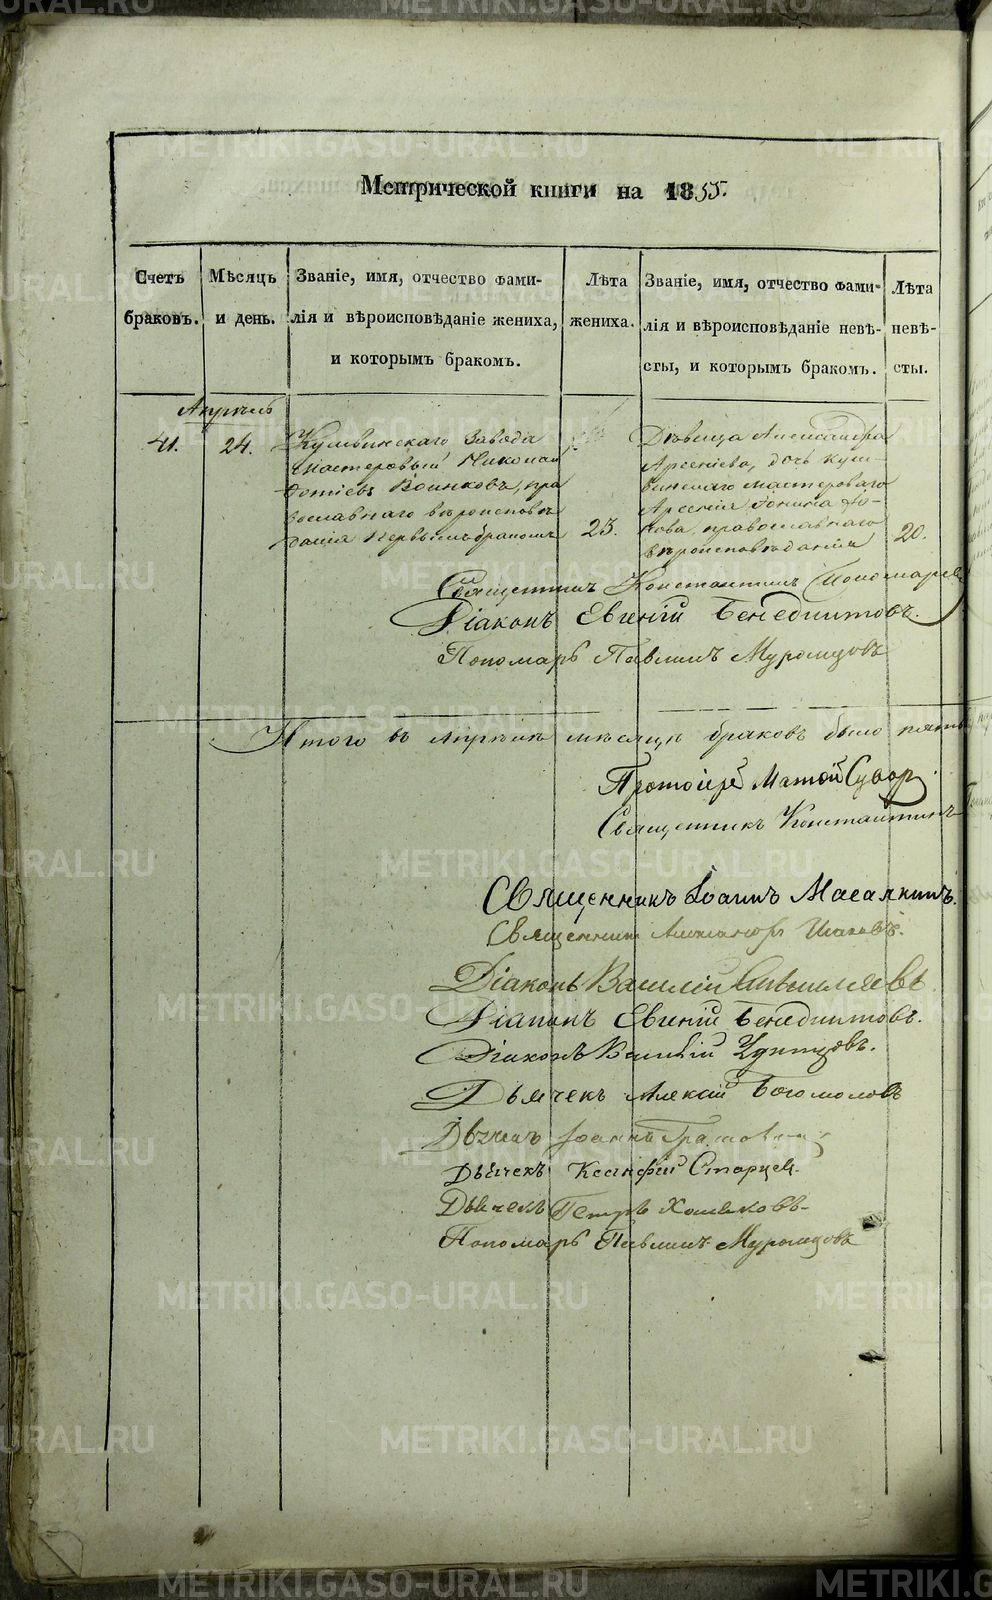 METRIKI.GASO-URAL.RU
Метрической книги на 1855.
Счетъ браковъ.
Мѣсяцъ и день.
Званіе, имя, отчество фами-
лія и вѣроисповѣданіе жениха,
и которымъ бракомъ.
Лѣта жениха.
Званіе, имя, отчество фами-
лія и вѣроисповѣданіе невѣ-
сты, и которымъ бракомъ.
Лѣта невѣ-
сты.
Апрѣль
41.
24.
Кушвинскаго Завода
мастеровый Николай
Фотіевъ Воинковъ, пра
вославнаго вѣроисповѣ
данія первымъ бракомъ
23.
Дѣвица Александра
Арсеніева, дочь Куш-
винскаго мастероваго
Арсенія
кова, православнаго
вѣроисповѣданія
20.
Священникъ Константинъ Пономаревъ
Діаконъ Евгеній Бенедиктовъ.
Пономарь Павлинъ Муромцовъ
Итого въ Апрѣлѣ мѣсяцѣ браковъ было пять
Протоіерей
Священникъ Константинъ
Священникъ Іоаннъ Масалкинъ.
Священникъ Александръ
Діаконъ Василій
Діаконъ Евгеній Бенедиктовъ.
Діаконъ
Дьячекъ Алексій Богомоловъ
Дьячекъ Іоаннъ
Дьячекъ Ксанфій Старцев.
Дьячекъ Петръ Хомяковъ
Пономарь Павлинъ Муромцовъ